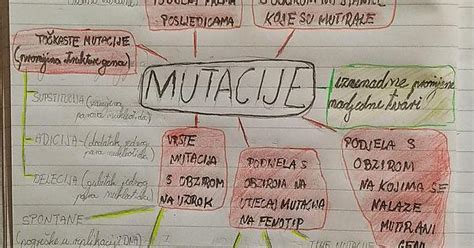 PODJELA PREMA
POSLJEDICAMA
S OBZIROM NA STANICE
KOJE SU MUTIRALE
TOČKASTE MUTACIJE
(promjena strukture gena)
MUTACIJE
iznenadne promjene
nasljedne tvari
SUPSTITUCIJA (zamjena
parova nukleotida)
ADICIJA (dodatak jednog
para nukleotida)
DELECIJA (gubitak jednog
para nukleotida)
VRSTE
MUTACIJA
S OBZIROM
NA UZROK
PODJELA S
OBZIROM NA
UTJECAJ MUTACIJA
NA FENOTIP
PODJELA S
OBZIROM
NA KOJIMA SE
NALAZE
MUTIRANI
GENI
SPONTANE
(pogreške u replikaciji DNA)